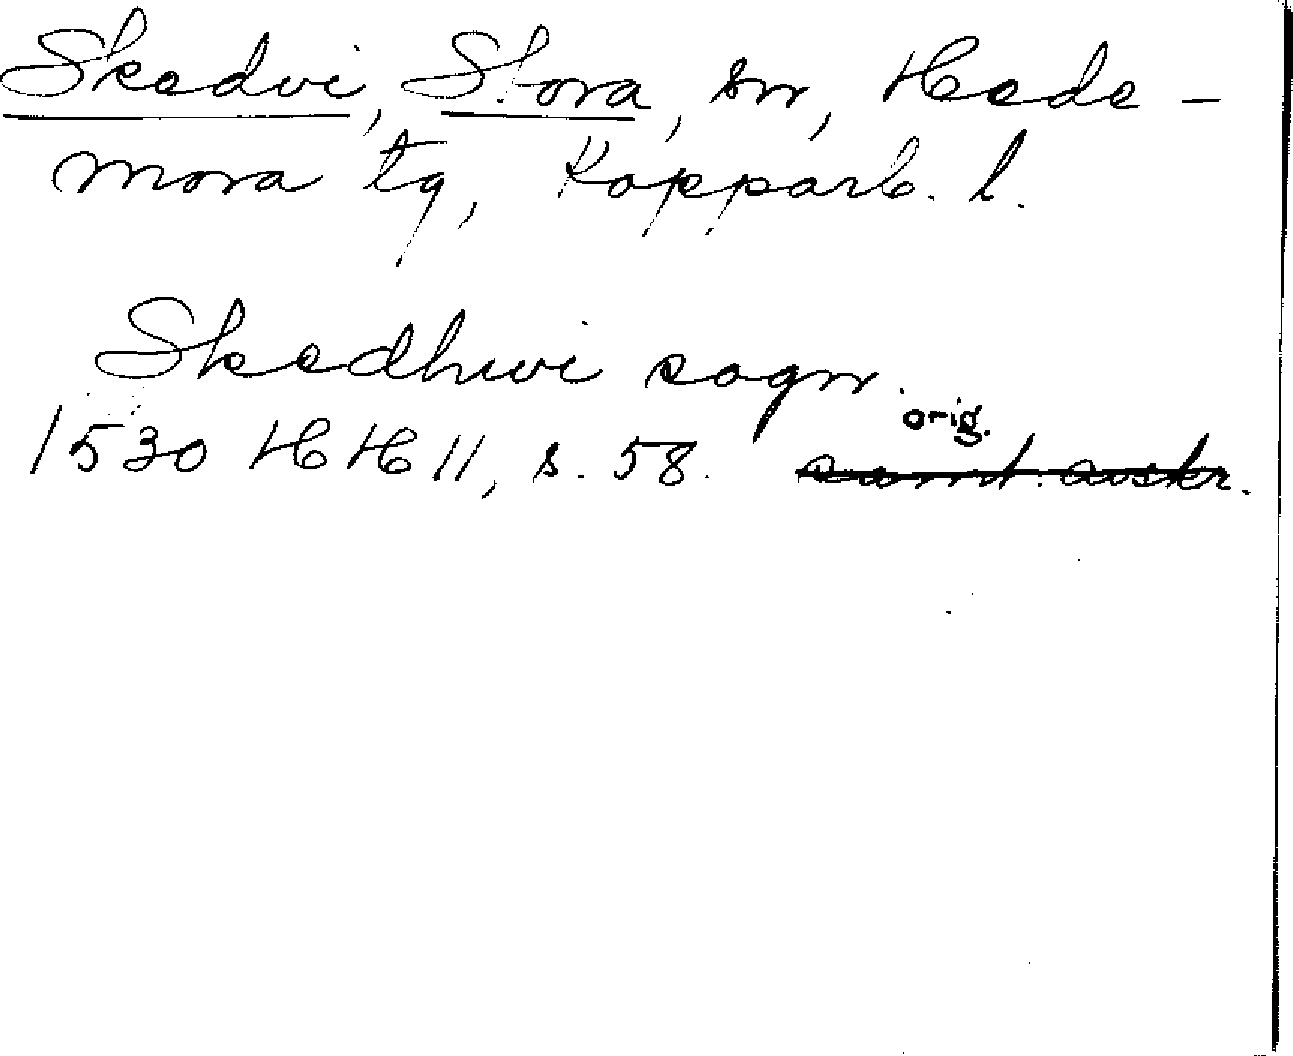 Skedvi, Stora, sn, Hede-
mora tg, Kopparb. l.
Skedhwi sogn.
orig.
1530 HH 11, s. 58. samt. avskr.